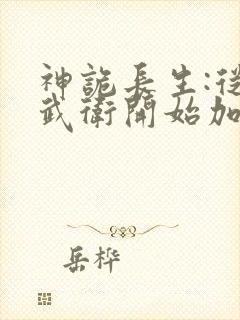 神詭長生:從
武衛開始加
岳桦